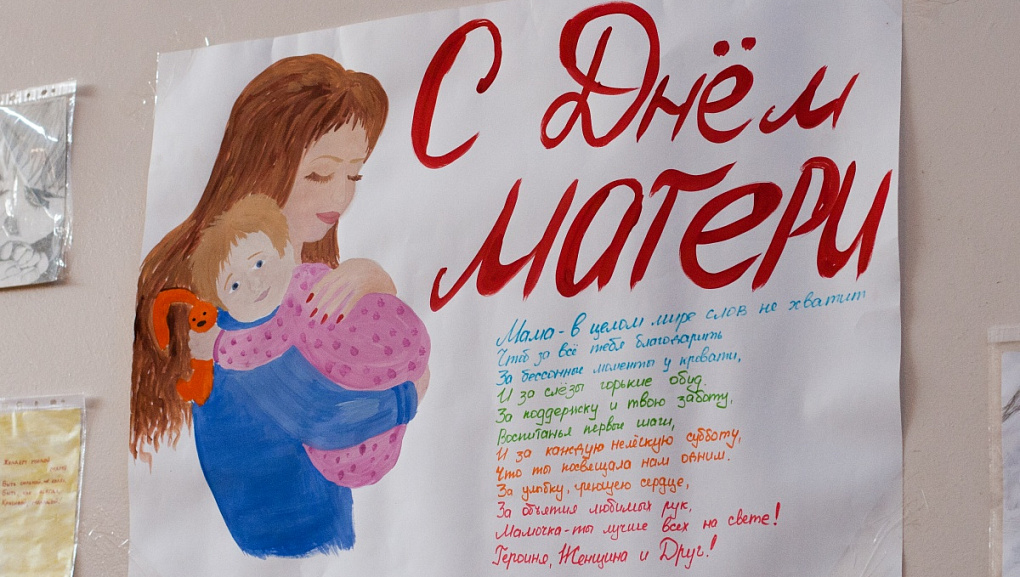 С Днём
матери
Мама - в целом мире слов не хватит
Чтоб за всё тебя благодарить
За бессонные моменты у кровати,
И за слёзы горькие обид.
За поддержку и твою заботу,
Воспитанья первые шаги,
И за каждую нелёгкую субботу,
Что ты посвещала нам одним.
За улыбку, греющую сердце,
За объятия любимых рук,
Мамочка - ты лучше всех на свете!
Героиня, Женщина и Друг!